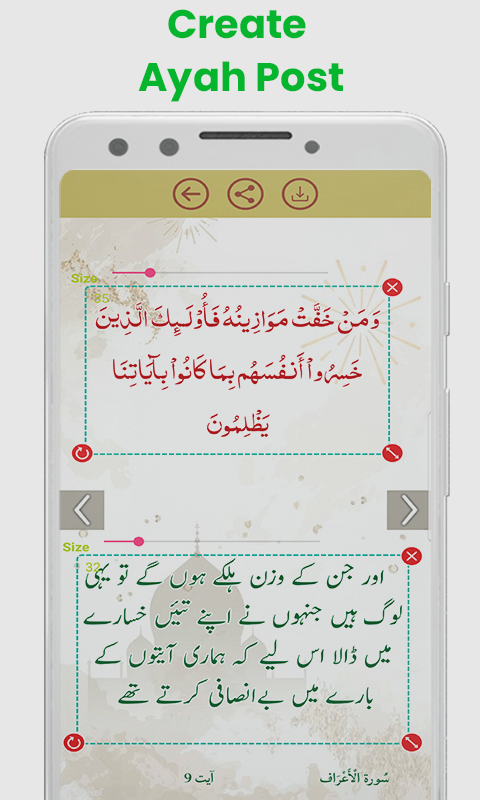 Create
Ayah Post
Size
35
وَمَنْ خَفَّتْ مَوَازِينُهُ فَأُوْلَـئِكَ الَّذِينَ
خَسِرُواْ أَنفُسَهُم بِمَا كَانُواْ بِآيَاتِنَا
يَظْلِمُونَ
Size
32
اور جن کے وزن ہلکے ہوں گے تو یہی
لوگ ہیں جنہوں نے اپنے تئیں خسارے
میں ڈالا اس لیے کہ ہماری آیتوں کے
بارے میں بےانصافی کرتے تھے
سُورة الْأَعْرَاف آیت 9